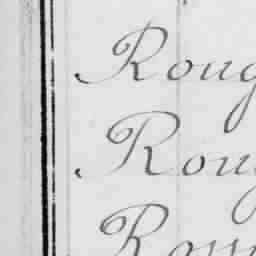 Roug
Roug
Roug